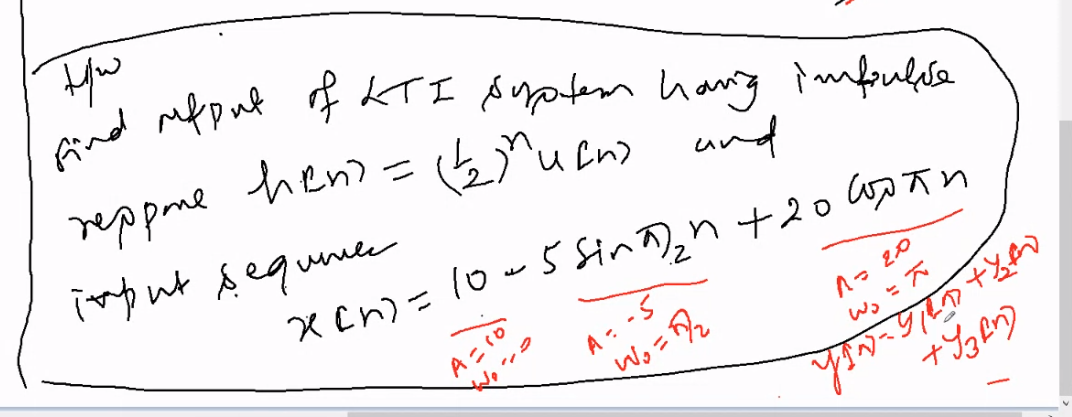 H/W
find output of LTI system having impulse
response h[n] = (1/2)^n u[n] and
input sequence
x[n] = 10 - 5 sin π/2 n + 20 cos πn
A = 10
ω0 = 0
A = -5
ω0 = π/2
A = 20
ω0 = π
y[n] = y1[n] + y2[n]
+ y3[n]